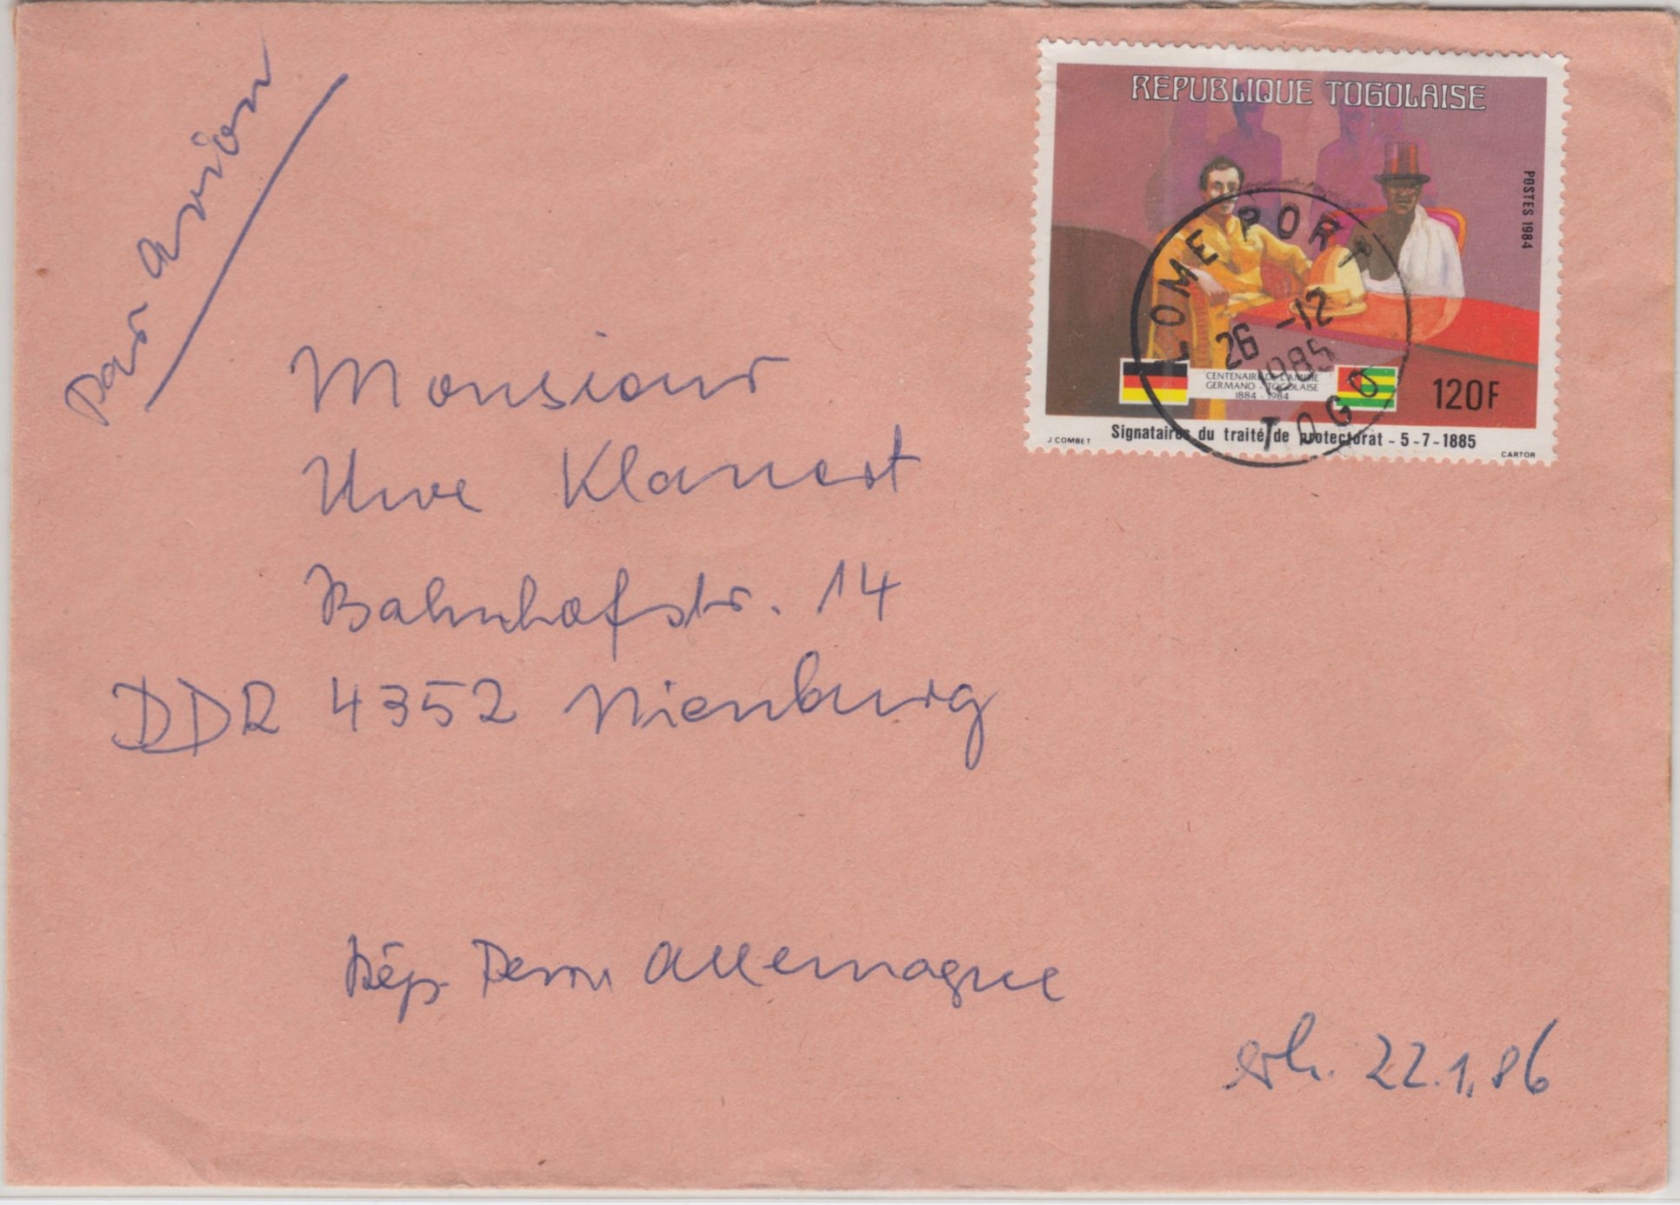 par avion
REPUBLIQUE TOGOLAISE
POSTES 1984
LOME PORT
26 -12
1985
TOGO
CENTENAIRE DE L'AMITIE
GERMANO - TOGOLAISE
1884 - 1984
120F
J. COMBET
Signataires du traité de protectorat - 5-7-1885
CARTOR
Monsieur
Uwe Klanert
Bahnhofstr. 14
DDR 4352 Nienburg
Rép. Dem. Allemagne
erh. 22.1.86